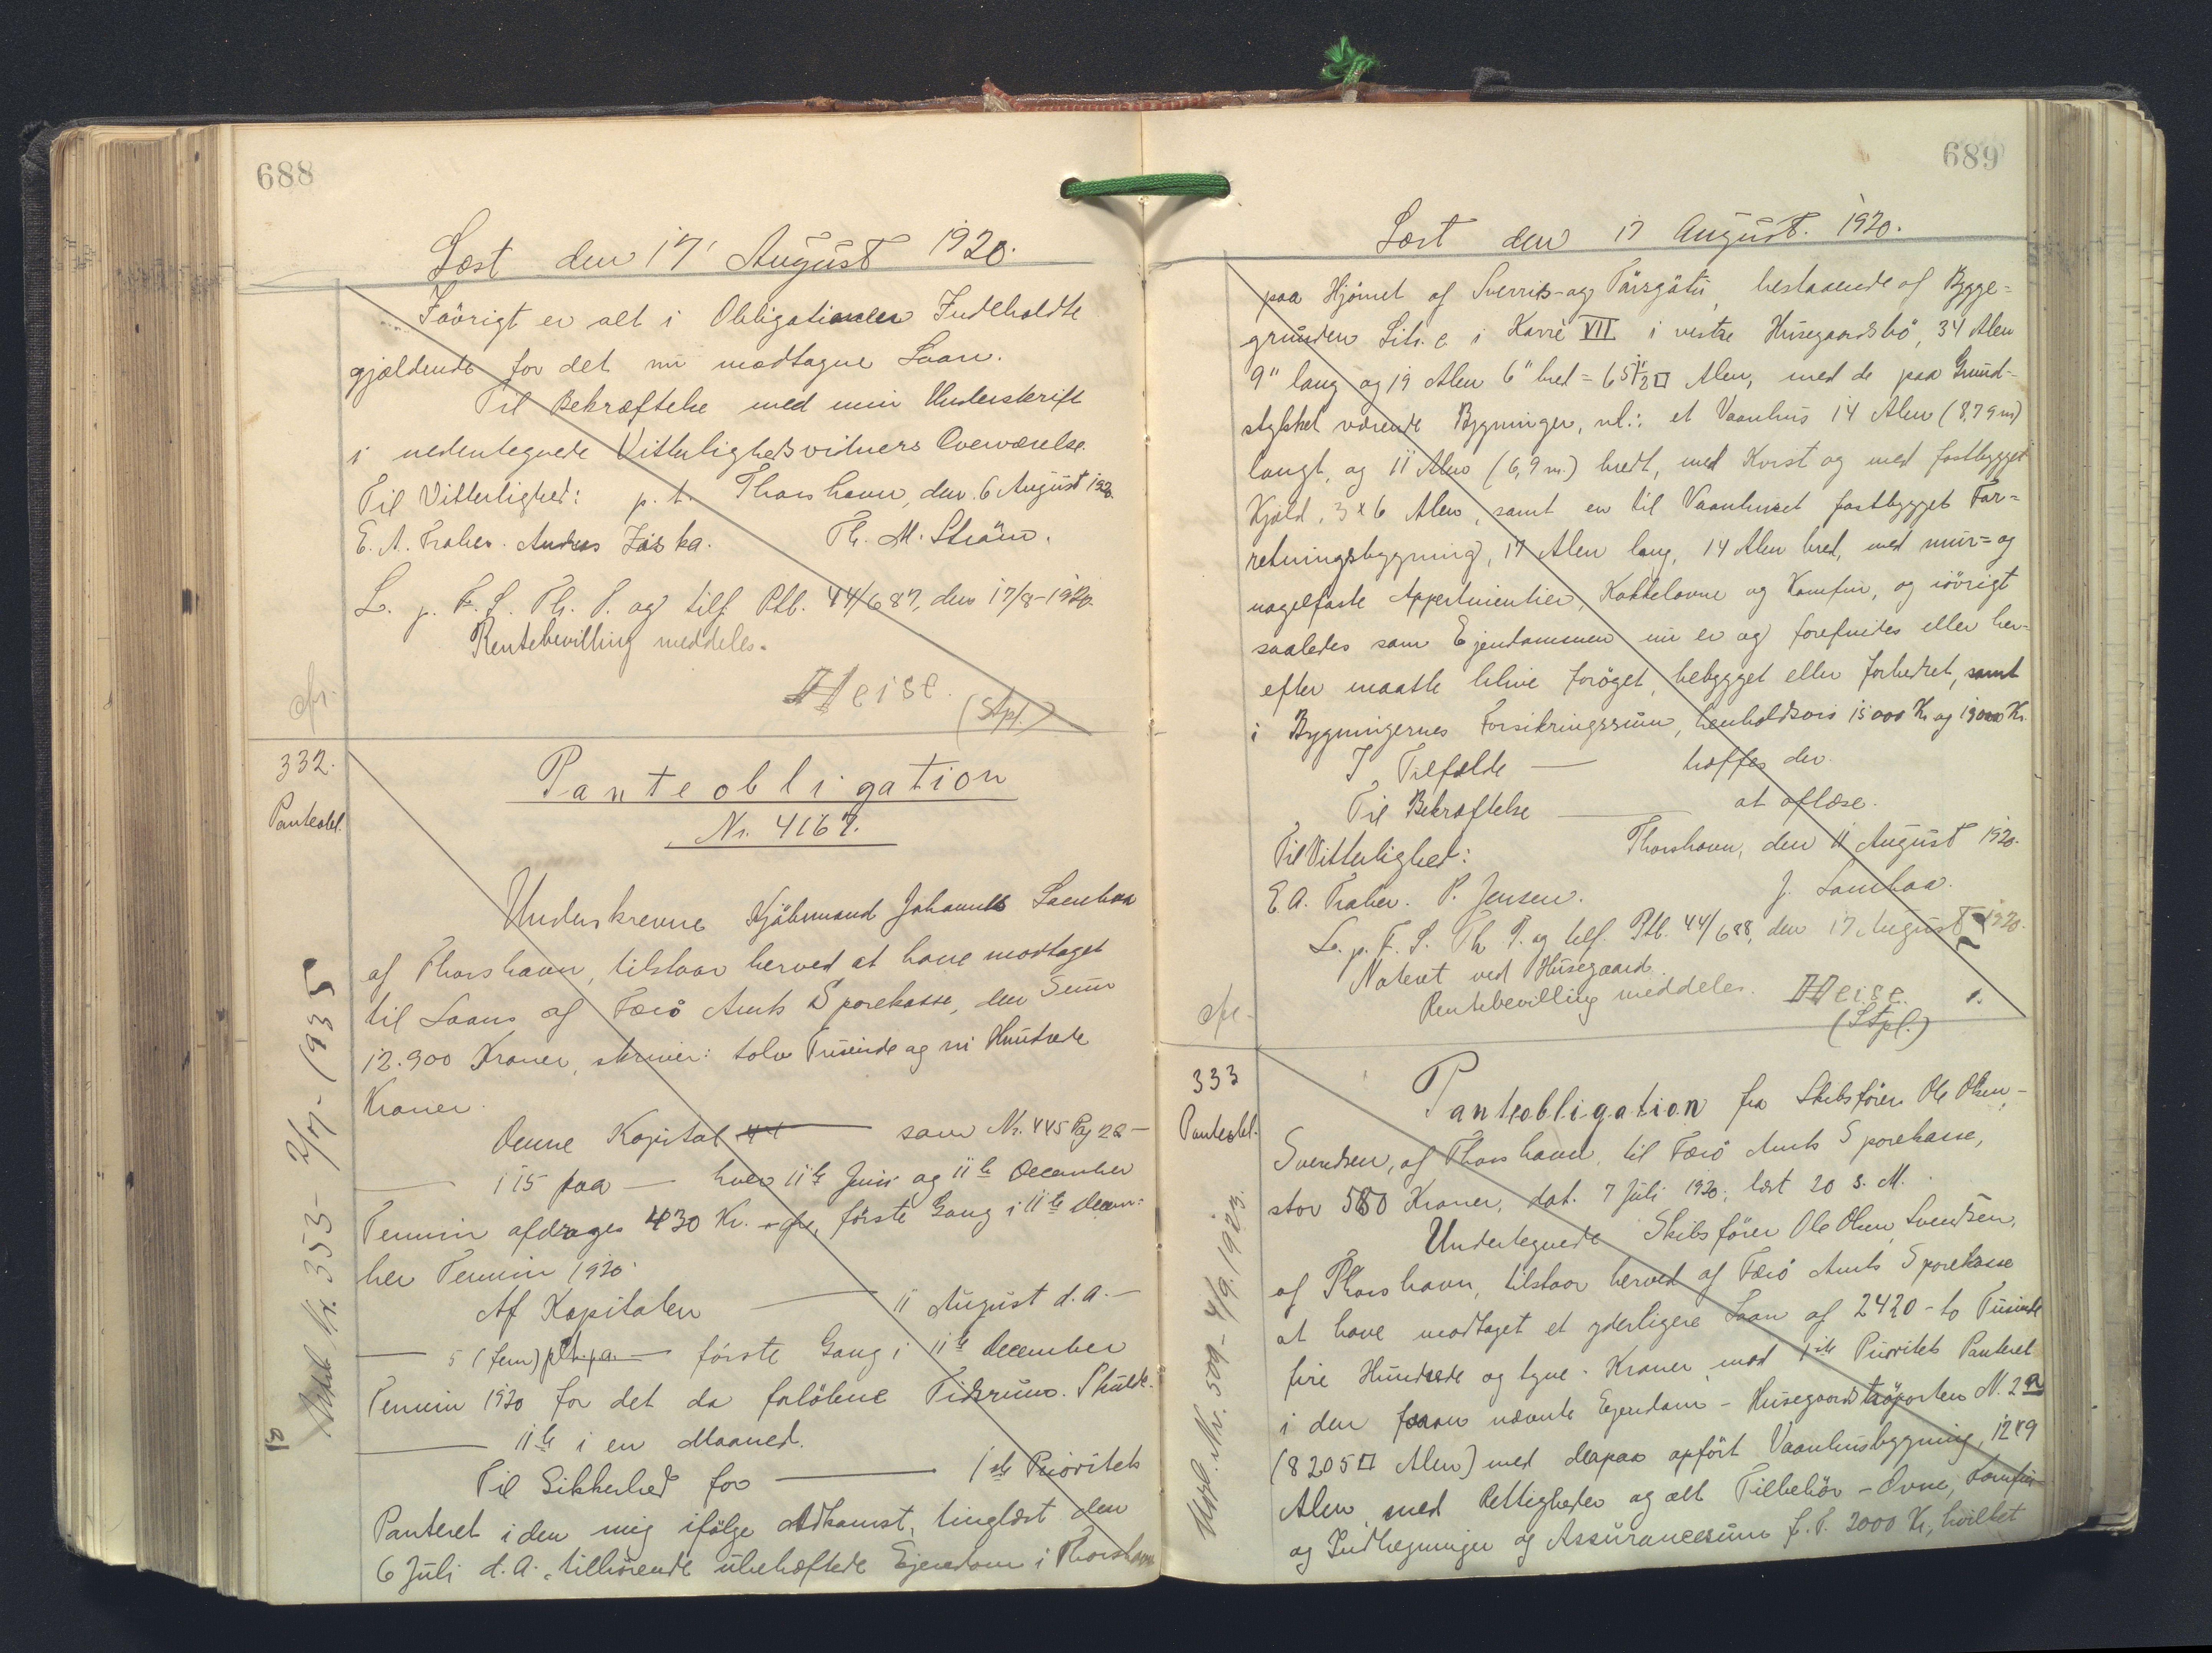 688
Læst den 17' August 1920.
Iøvrigt er alt i Obligationen Indeholdte
gjældende for det nu modtagne Laan.
Til Bekræftelse med min Underskrift
i nedentegnede Vitterlighedsvidners Overværelse.
Til Vitterlighed: p. t. Thorshavn, den 6 August 1920.
E. A. Andreas Th. M. Ström.
L. p. F. S. Th. P. og tilf. Ptb. 44/687, den 17/8-1920.
Rentebevilling meddeles.
Heise.
(Stpl.)
332.
Panteobl.
Panteobligation
Nr. 4167.
Underskrevne Kjøbmand Johannes Lamhaa
af Thorshavn, tilstaar herved at have modtaget
til Laans af Færø Amts Sparekasse, den Sum
12.900 Kroner, skriver: tolv Tusinde og ni Hundrede
Kroner.
Denne Kapital — som Nr. 445 Pag 22 —
— i 15 paa — hver 11te Juni og 11te December
Termin afdrages 430 Kr. første Gang i 11te Decem:
ber Termin 1920.
Af Kapitalen — 11 August d. A. —
— 5 (fem) pCt. p.a. — første Gang i 11te December
Termin 1920 for det da forløbne Tidsrum. Skulde
— 11te i en Maaned.
Til Sikkerhed for — 1ste Prioritets
Panteret i den mig ifølge Adkomst, tinglæst den
6 Juli d. A. tilhørende ubehæftede Ejendom i Thorshavn
Nr. 353- 2/7-1935
689
Læst den 17 August. 1920.
paa Hjørnet af Sverris- og Tårsgøtu, bestaaende af Bygge=
grunden Litr. c i Karré VII i vestre Húsegaardsbø, 34 Alen
9" lang og 19 Alen 6" bred = 651½ □ Alen, med de paa Grund-
stykket værende Bygninger, nl.: et Vaanhus 14 Alen (8,79 m)
langt, og 11 Alen (6,9 m.) bredt, med Kvist og med fastbygget
Kjøld, 3 x 6 Alen, samt en til Vaanhuset fastbygget For=
retningsbygning, 17 Alen lang, 14 Alen bred, med mur= og
nagelfaste Appertinentier, Kakkelovne og Komfur, og iøvrigt
saaledes som Ejendommen nu er og forefindes eller her=
efter maatte blive forøget, bebygget eller forbedret, samt
i Bygningernes Forsikringssum, henholdsvis 15000 Kr. og 19000 Kr.
I Tilfælde — træffes der.
Til Bekræftelse — at aflæse.
Til Vitterlighed: Thorshavn, den 11 August 1920.
E. A. P. Jensen. J. Lamhaa.
L. p. F. S. Th. P. og tilf. Ptb. 44/688, den 17 August 1920.
Noteret ved Húsegaard.
Rentebevilling meddeles. Heise.
(Stpl.)
333
Panteobl.
Panteobligation fra Skibsfører Ole Olsen,-
Svendsen, af Thorshavn, til Færø Amts Sparekasse,
stor 580 Kroner, dat. 7 Juli 1920; læst 20 s. M.
Undertegnede Skibsfører Ole Olsen Svendsen,
af Thorshavn, tilstaar herved af Færø Amts Sparekasse
at have modtaget et yderligere Laan af 2420 - to Tusinde
fire Hundrede og tyve - Kroner mod 1ste Prioritets Panteret
i den foran nævnte Ejendom - Húsegaards N. 2a
(8205 □ Alen) med derpaa opført Vaanhusbygning, 12x9
Alen, med Rettigheder og alt Tilbehør - Ovne, Komfur -
og Indhegninger og Assurancesum f. T. 2000 Kr., hvilket
Nr. 509 - 4/9. 1923.